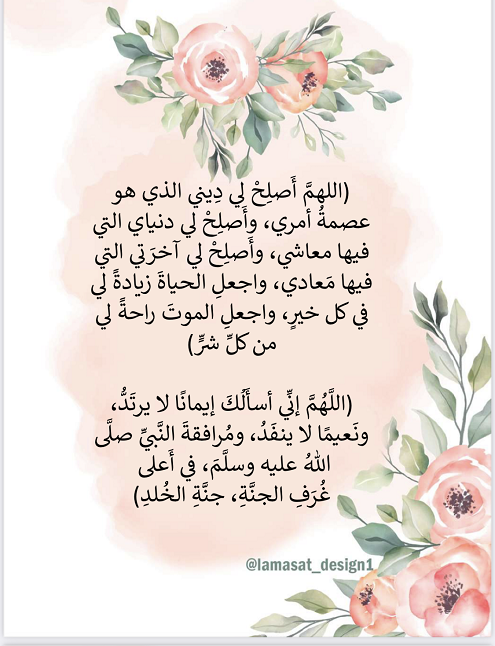 (اللهمَّ أَصلِحْ لي دِيني الذي هو
عصمةُ أمري، وأَصلِحْ لي دنياي التي
فيها معاشي، وأَصلِحْ لي آخرَتي التي
فيها مَعادي، واجعلِ الحياةَ زيادةً لي
في كل خيرٍ، واجعلِ الموتَ راحةً لي
من كلِّ شرٍّ)
(اللَّهُمَّ إنِّي أسأَلُكَ إيمانًا لا يرتَدُّ،
ونَعيمًا لا ينفَدُ، ومُرافقةَ النَّبيِّ صلَّى
اللهُ عليه وسلَّمَ، في أَعلى
غُرَفِ الجنَّةِ، جنَّةِ الخُلدِ)
@lamasat_design1